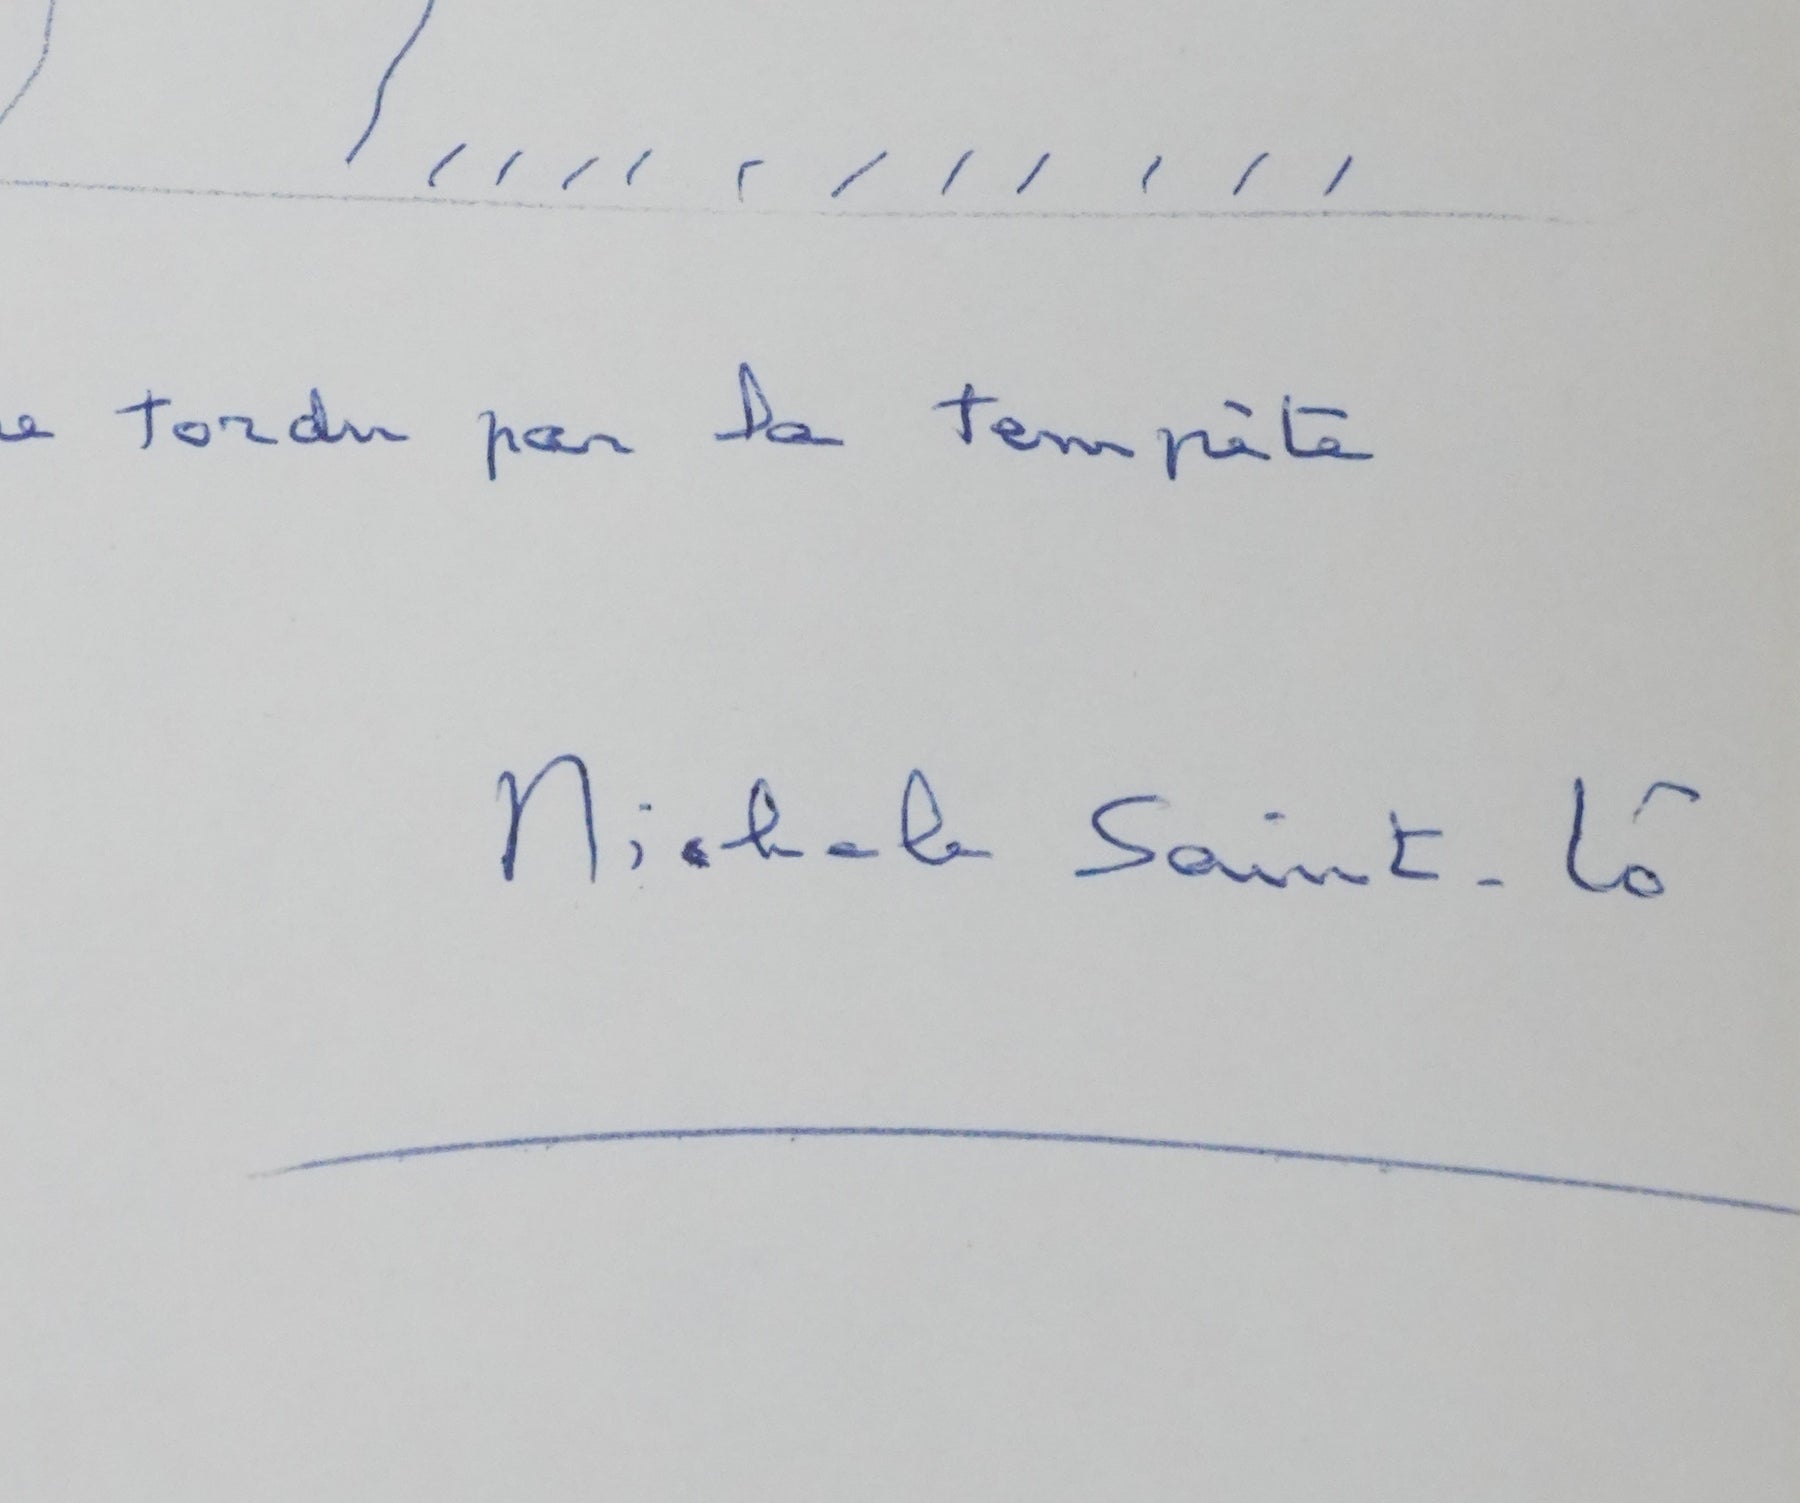 tordu par la tempête
Michele Saint-Lô